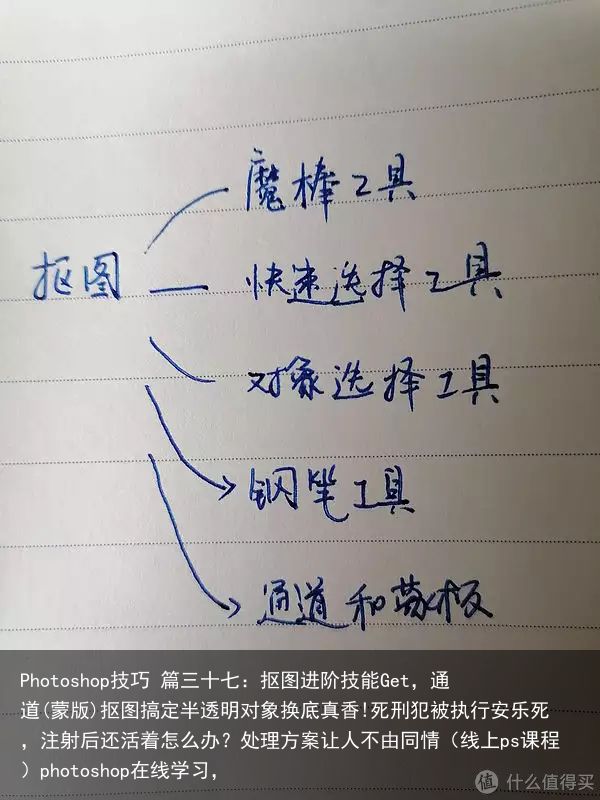 魔棒工具
抠图
快速选择工具
对象选择工具
钢笔工具
通道和蒙板
Photoshop技巧 篇三十七：抠图进阶技能Get，通
道(蒙版)抠图搞定半透明对象换底真香!死刑犯被执行安乐死
，注射后还活着怎么办？处理方案让人不由同情（线上ps课程
）photoshop在线学习，
值 什么值得买